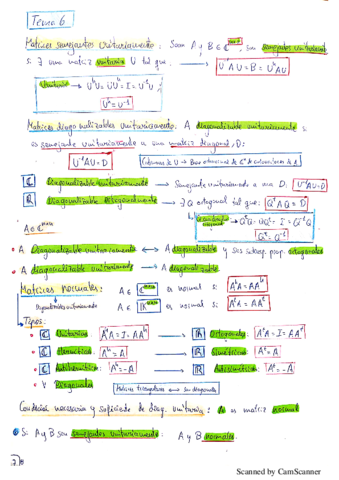 Tema 6
Matrices semejantes unitariamente: Sean A y B ∈ ℂⁿˣⁿ, son semejantes unitariamente
si ∃ una matriz unitaria U tal que U⁻¹AU = B = UᴴAU
Unitaria → UᴴU = UUᴴ = I = U⁻¹U
Uᴴ = U⁻¹
Matrices diagonalizables unitariamente: A diagonalizable unitariamente si
es semejante unitariamente a una matriz diagonal D:
U⁻¹AU = D
Columnas de U → Base ortonormal de ℂⁿ de autovectores de A
ℂ Diagonalizable unitariamente → Semejante unitariamente a una D: U⁻¹AU=D
ℝ Diagonalizable ortogonalmente → ∃ Q ortogonal tal que: QᵗAQ = D
A ∈ ℂⁿˣⁿ
Qᵗ = Q⁻¹
• A Diagonalizable unitariamente ↔ A diagonalizable y sus subesp. prop. ortogonales
• A diagonalizable unitariamente → A diagonalizable
Matrices normales: A ∈ ℂⁿˣⁿ es normal si: AᴴA = AAᴴ
Diagonalizables unitariamente A ∈ ℝⁿˣⁿ es normal si: AᵗA = AAᵗ
Tipos:
• ℂ Unitarias AᴴA = I = AAᴴ → ℝ Ortogonales: AᵗA = I = AAᵗ
• ℂ Hermíticas Aᴴ = A → ℝ Simétricas Aᵗ = A
• ℂ Antihermíticas Aᴴ = -A → ℝ Antisimétricas Aᵗ = -A
• Y Diagonales
Matrices triangulares son diagonales
Condición necesaria y suficiente de diag. unitaria: A es matriz normal
Si A y B son semejantes unitariamente: A y B normales.
Scanned by CamScanner